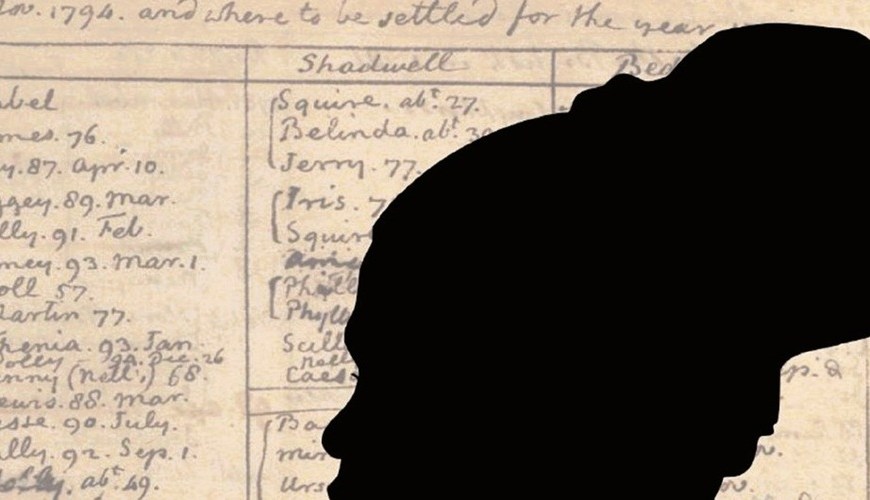 Nov. 1794. and where to be settled for the year
Shadwell
Bed
bel
mes. 76.
y. 87. Apr. 10.
ggey. 89. Mar.
lly. 91. Feb.
ney. 93. Mar. 1.
oll 57.
artin 77.
genia. 93. Jan
Polly 94. Dec. 26
enny (Nell's) 68.
ewis. 88. Mar.
esse. 90. July.
ally. 92. Sep. 1.
abt. 49.
Squire. abt. 27.
Belinda. abt. 39
Jerry. 77.
Iris. 7
Squire
Phill
Phyll
Scill
Nell
Caes
Ba
min
Urs
p. 2
v.